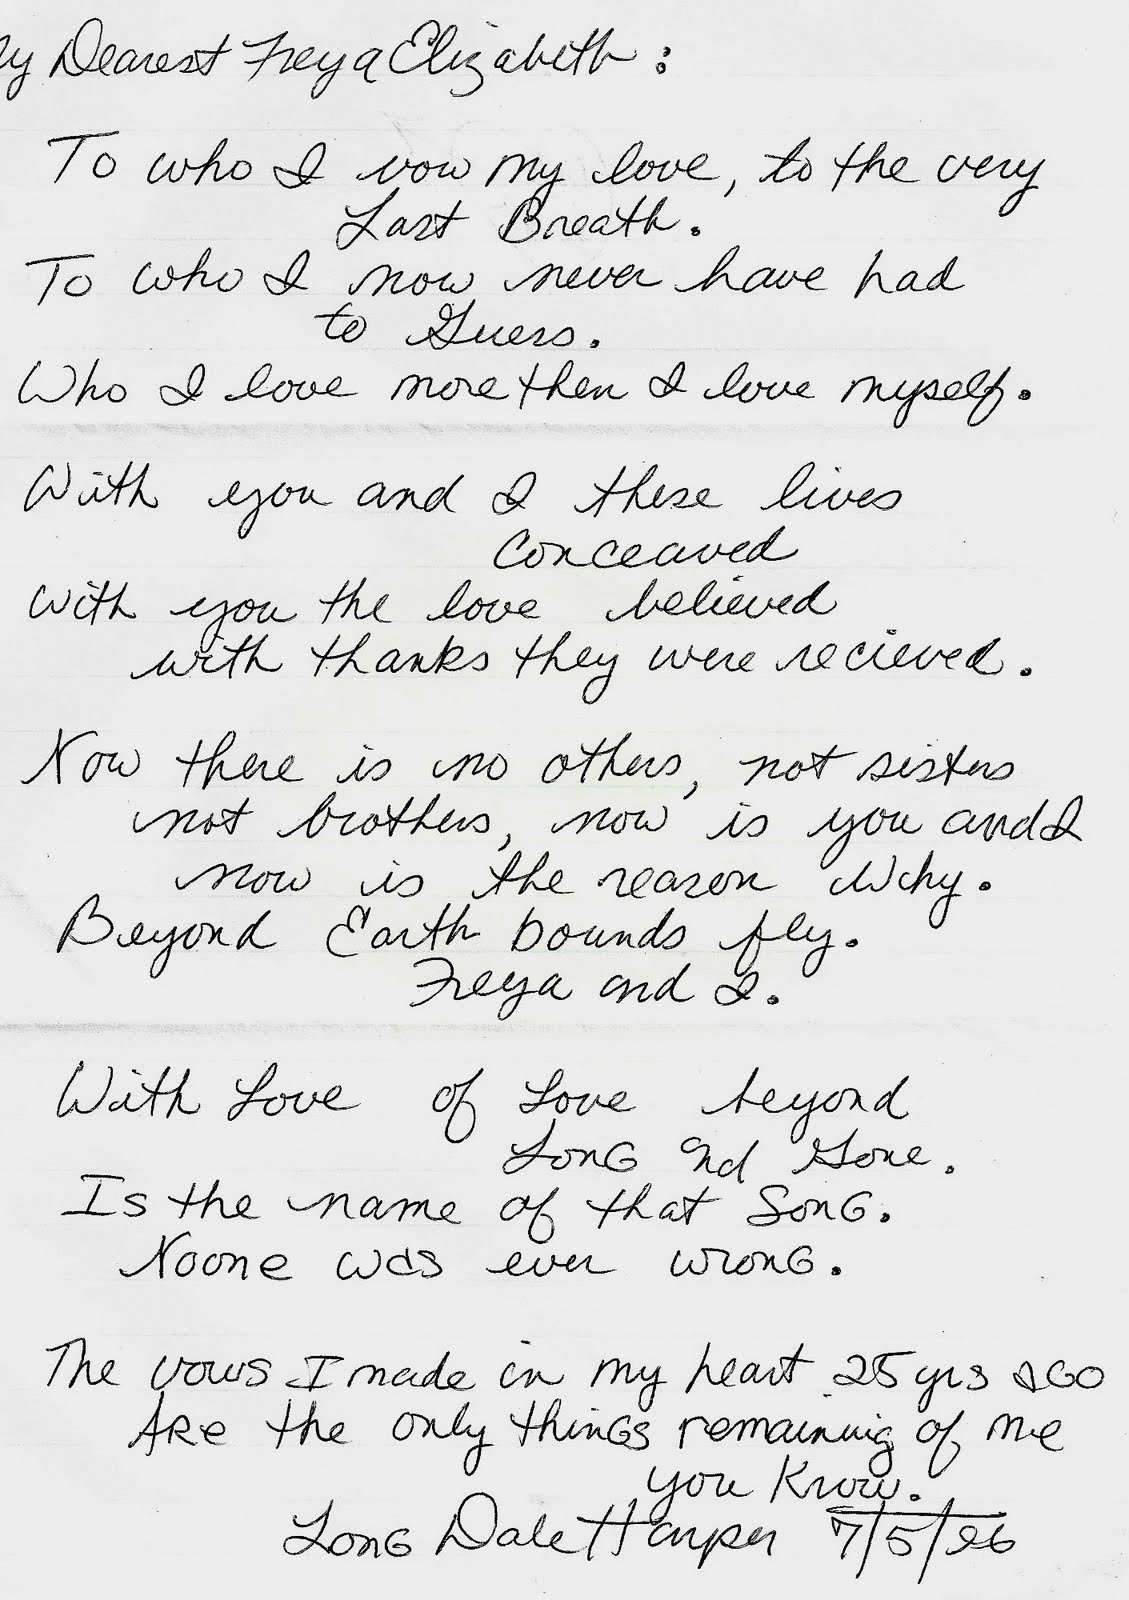 My Dearest Freya Elizabeth:
To who I vow my love, to the very
Last Breath.
To who I now never have had
to Guess.
Who I love more then I love myself.
With you and I these lives
conceaved
with you the love believed
with thanks they were recieved.
Now there is no others, not sisters
not brothers, now is you and I
now is the reason Why.
Beyond Earth bounds fly.
Freya and I.
With Love of Love beyond
Long and Gone.
Is the name of that Song.
Noone was ever wrong.
The vows I made in my heart 25 yrs ago
Are the only things remaining of me
you Know.
Long Dale Harper 7/5/96